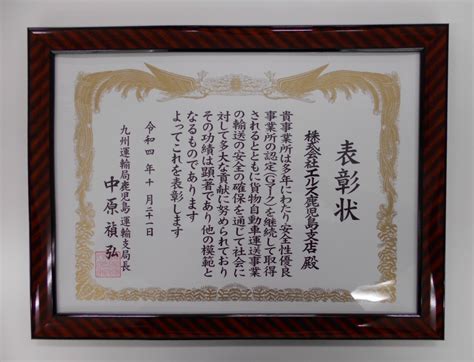 表彰状
株式会社エルズ鹿児島支店 殿
貴事業所は多年にわたり安全性優良
事業所の認定(Gマーク)を継続して取得
されるとともに貨物自動車運送事業
の輸送の安全の確保を通じて社会に
対して多大な貢献に努められており
その功績は顕著であり他の模範と
なるものであります
よってこれを表彰します
令和四年十月二十一日
九州運輸局鹿児島運輸支局長
中原禎弘